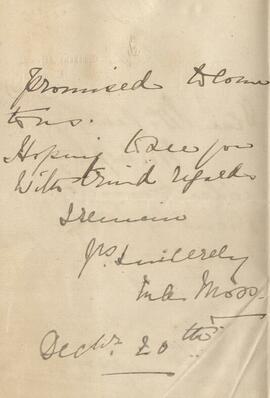 promised to come
to us.
Hoping to see you
With kind regards
I remain
Yrs. Sincerely
Moss
Decbr. 20th